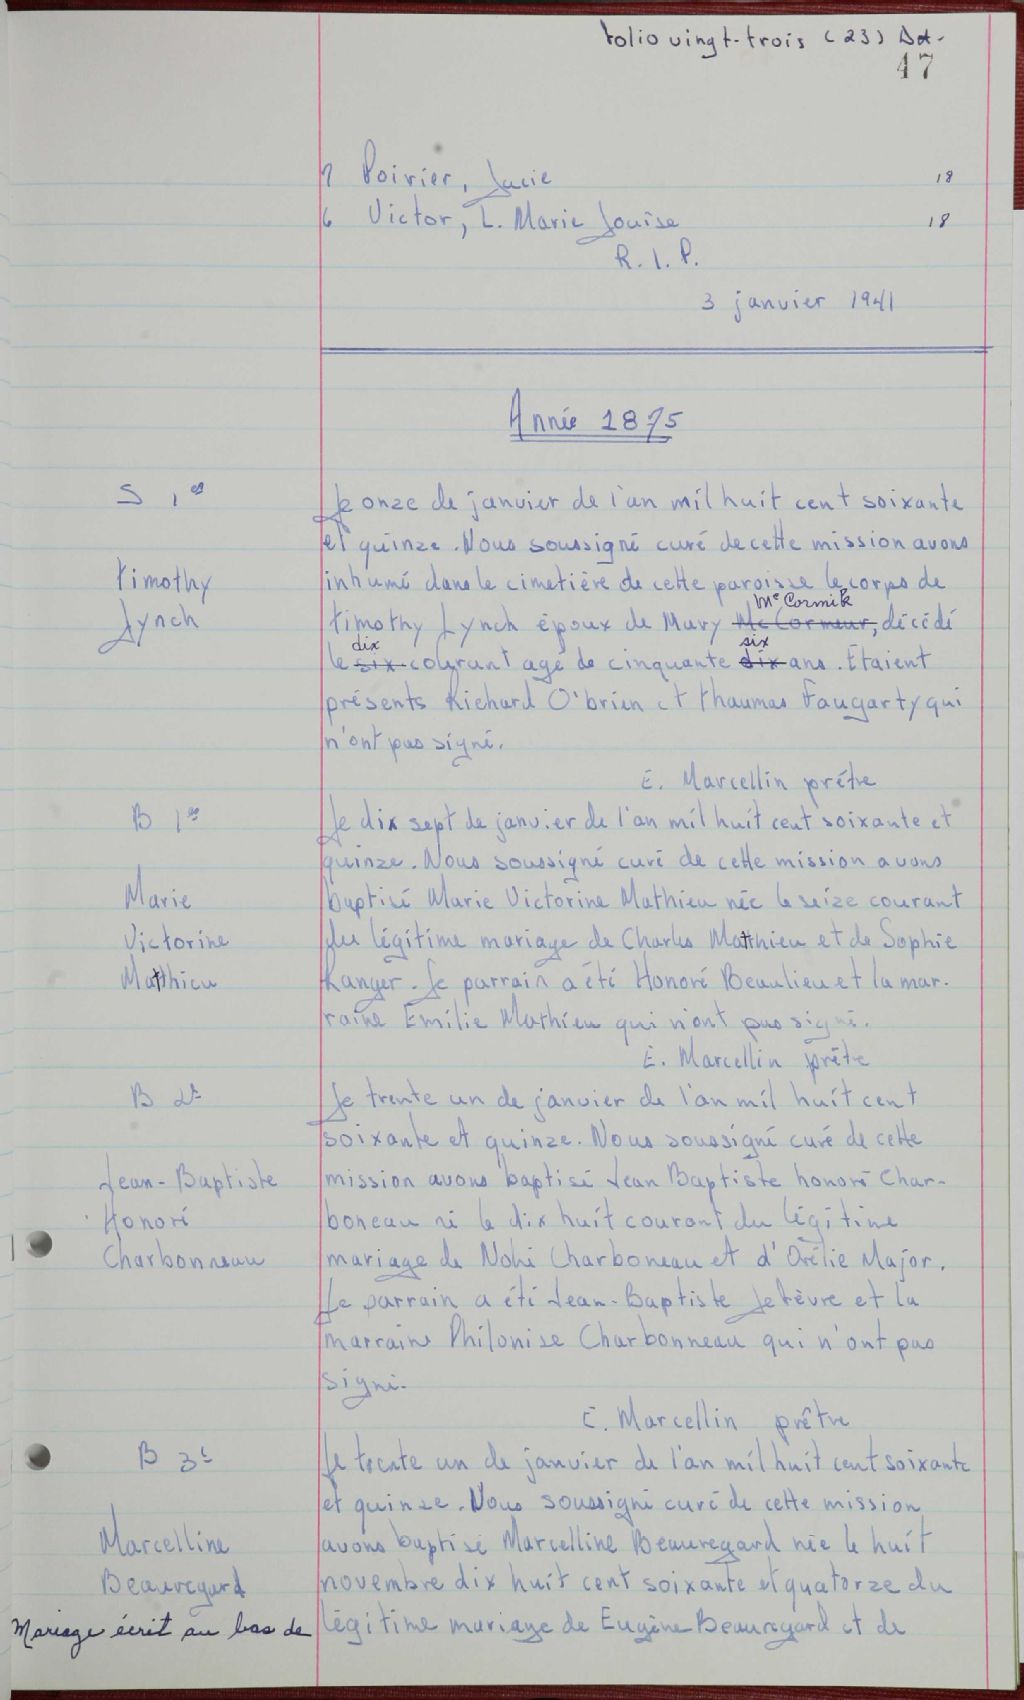 folio vingt-trois (23) Dt.
47
7 Poirier, Lucie 18
6 Victor, L. Marie Louise 18
R. I. P.
3 janvier 1941
Année 1875
S 1er
Le onze de janvier de l'an mil huit cent soixante
et quinze. Nous soussigné curé de cette mission avons
timothy
inhumé dans le cimetière de cette paroisse le corps de
Mc Cormik
Lynch
timothy Lynch époux de Mary Mc Cormeur, décédé
dix six
le six courant agé de cinquante dix ans. Étaient
présents Richard O'brien et thaumas Faugarty qui
n'ont pas signé.
E. Marcellin prêtre
B 1er
Le dix sept de janvier de l'an mil huit cent soixante et
quinze. Nous soussigné curé de cette mission avons
Marie
baptisé Marie Victorine Mathieu née le seize courant
Victorine
du légitime mariage de Charles Matthieu et de Sophie
Matthieu
Ranger. Le parrain a été Honoré Beaulieu et la mar-
raine Emilie Mathieu qui n'ont pas signé.
E. Marcellin prêtre
B 2e
Le trente un de janvier de l'an mil huit cent
soixante et quinze. Nous soussigné curé de cette
Jean-Baptiste
mission avons baptisé Jean Baptiste honoré Char-
Honoré
boneau né le dix huit courant du légitime
Charbonneau
mariage de Nohé Charboneau et d'Orélie Major.
Le parrain a été Jean-Baptiste Lefèvre et la
marraine Philonise Charbonneau qui n'ont pas
signé.
E. Marcellin prêtre
B 3e
Le trente un de janvier de l'an mil huit cent soixante
et quinze. Nous soussigné curé de cette mission
Marcelline
avons baptisé Marcelline Beauregard née le huit
Beauregard
novembre dix huit cent soixante et quatorze du
Mariage écrit au bas de
légitime mariage de Eugène Beauregard et de